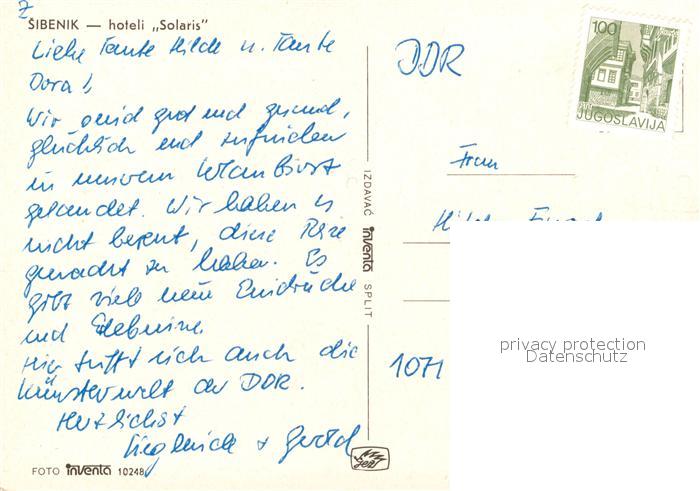 ŠIBENIK — hoteli „Solaris"
Liebe Tante Hilde u. Tante
Dora!
Wir sind gut und gesund,
glücklich und zufrieden
in unserem Urlaubsort
gelandet. Wir haben es
nicht bereut, diese Reise
gemacht zu haben. Es
gibt viele neue Eindrücke
und Erlebnisse.
Hier trifft sich auch die
Künstlerwelt der DDR.
Herzlichst
Sieglinde + Gerold
FOTO inventa 10248
IZDAVAČ inventa SPLIT
DDR
100
JUGOSLAVIJA
Frau
1071
privacy protection
Datenschutz